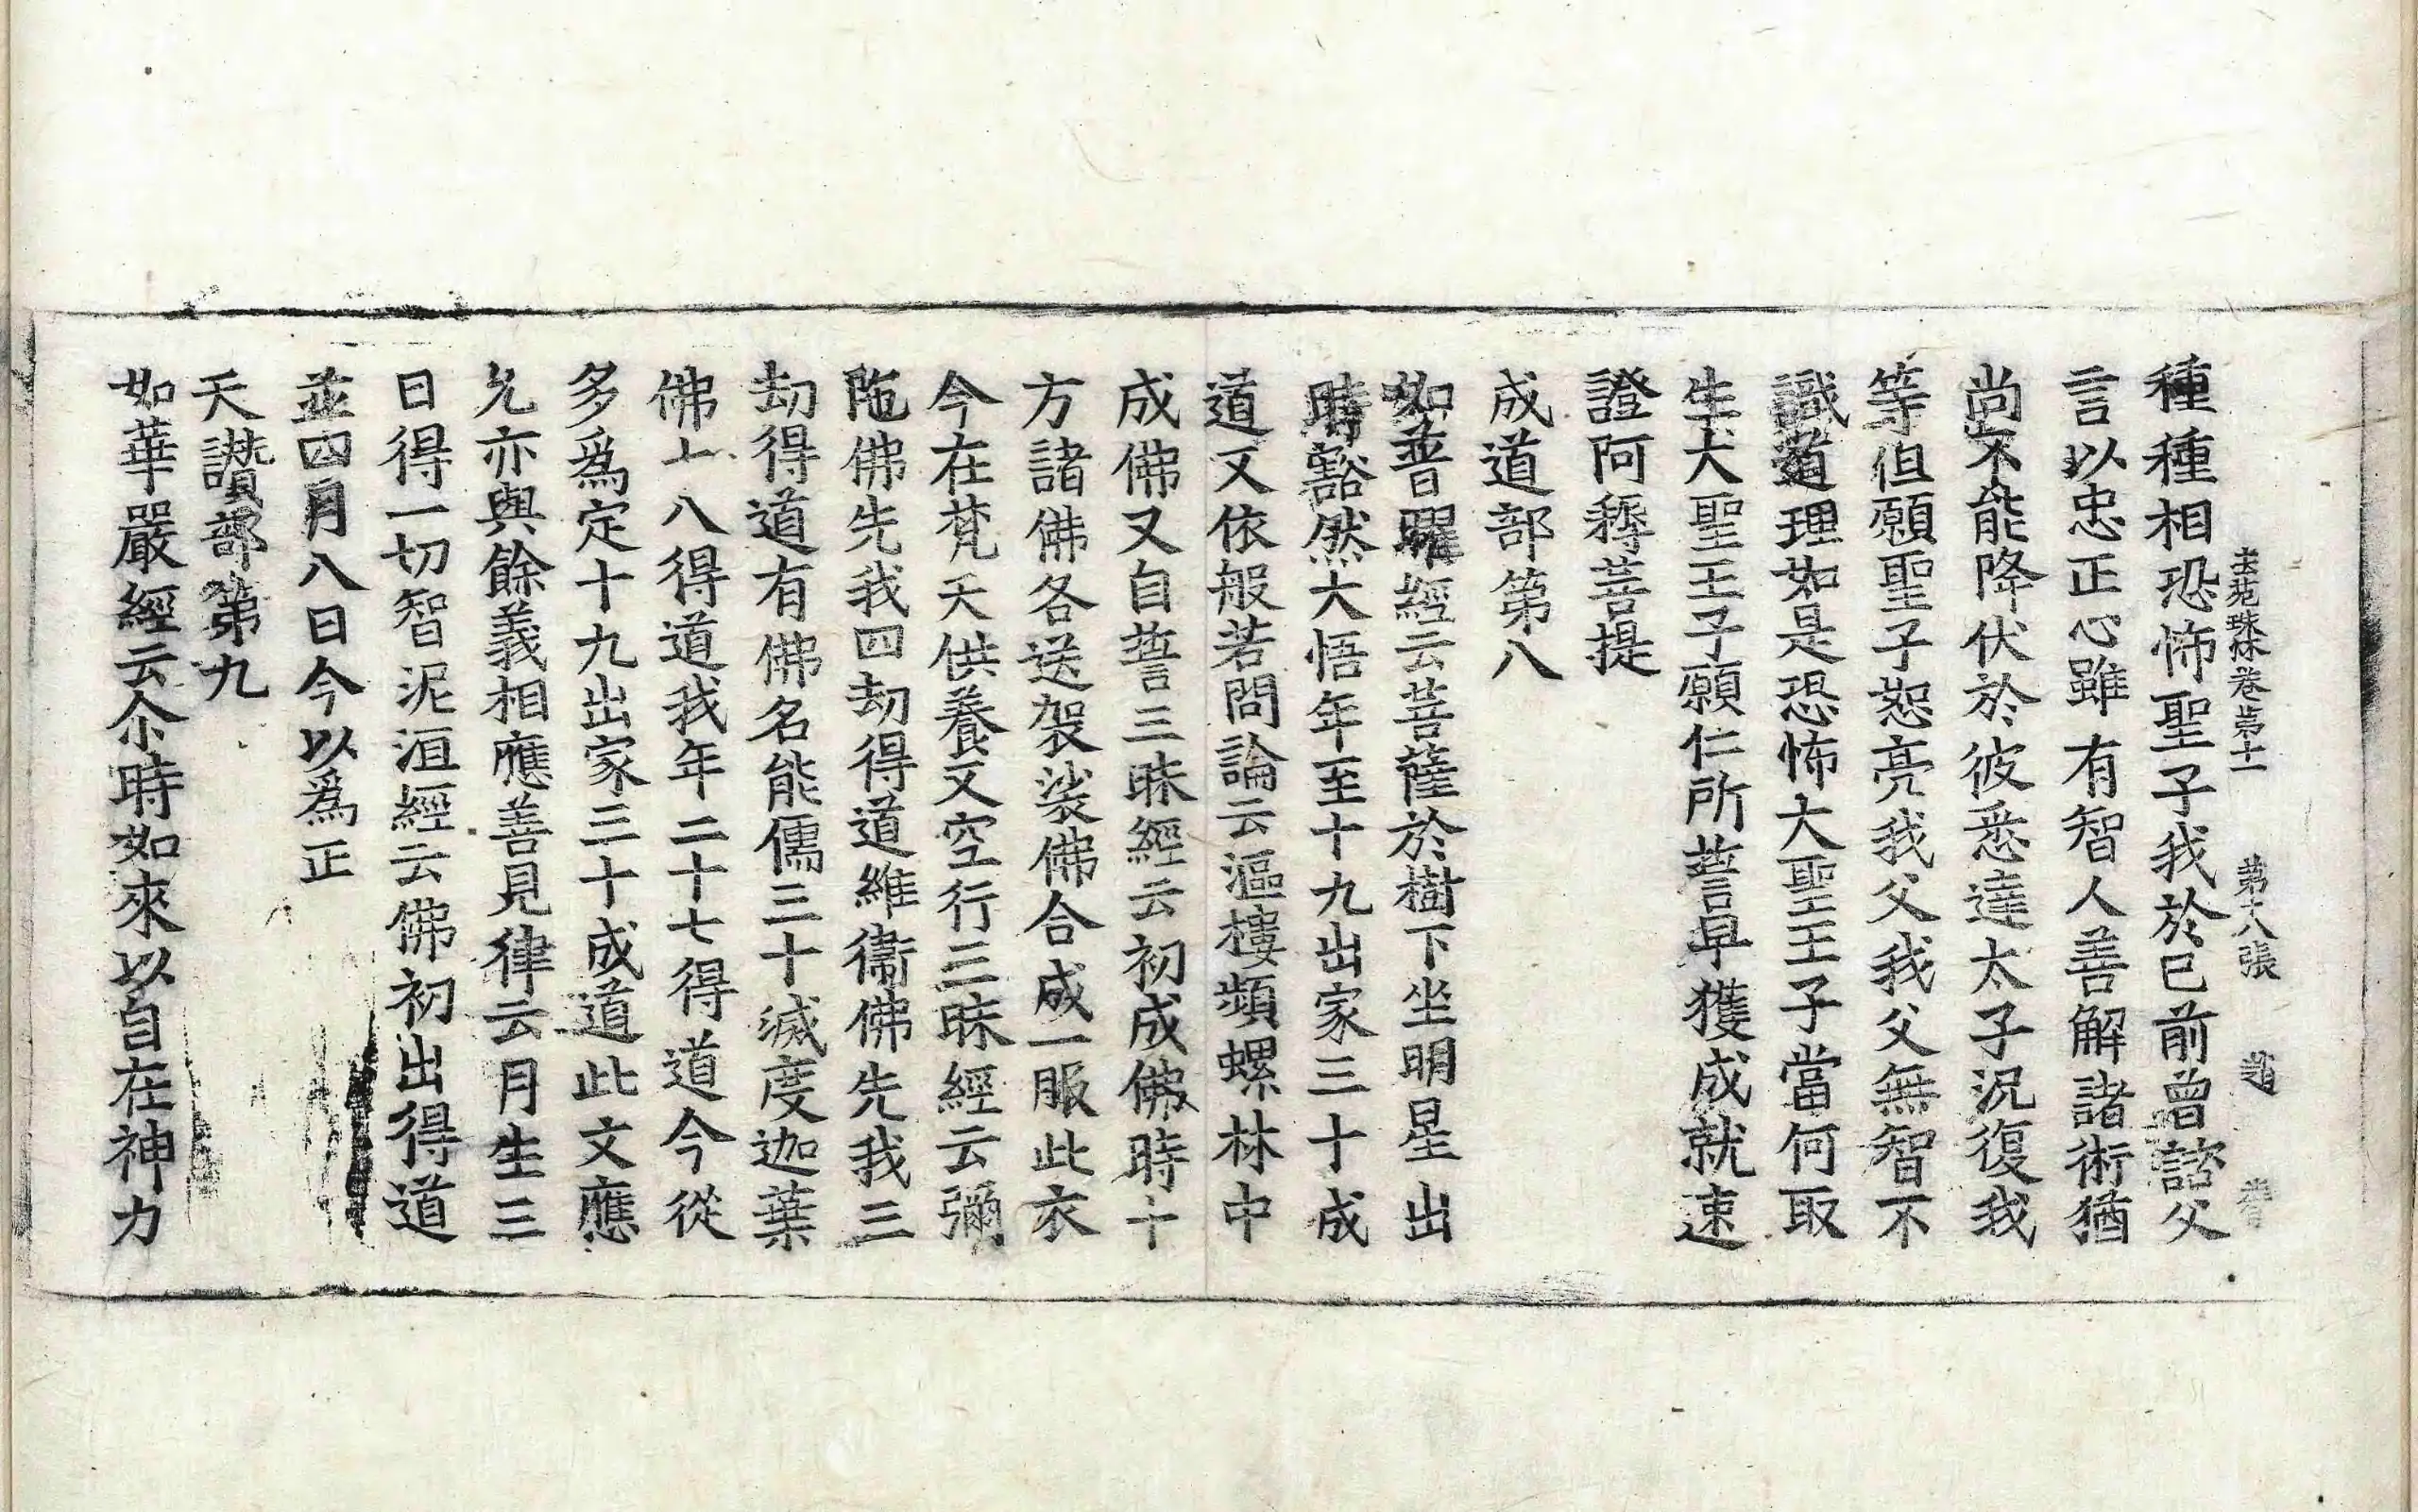 法苑珠林卷第十一 第十八張 道
種種相恐怖聖子我於已前曾諮父
言以忠正心雖有智人善解諸術猶
尚不能降伏於彼悉達太子況復我
等但願聖子恕亮我父我父無智不
識道理如是恐怖大聖王子當何取
生大聖王子願仁所誓早獲成就速
證阿耨菩提
成道部第八
如普曜經云菩薩於樹下坐明星出
時豁然大悟年至十九出家三十成
道又依般若問論云漚樓頻螺林中
成佛又自誓三昧經云初成佛時十
方諸佛各送袈裟佛合成一服此衣
今在梵天供養又空行三昧經云彌
陁佛先我四劫得道維衞佛先我三
劫得道有佛名能儒三十滅度迦葉
佛十八得道我年二十七得道今從
多爲定十九出家三十成道此文應
允亦與餘義相應善見律云月生三
日得一切智泥洹經云佛初出得道
並四月八日今以爲正
天讚部第九
如華嚴經云尒時如來以自在神力